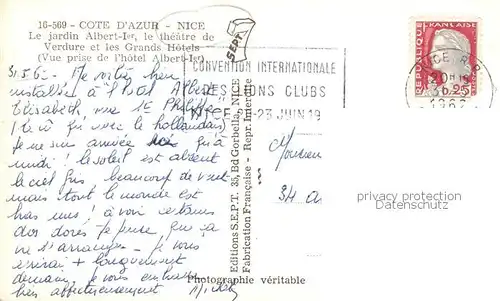 16-569 - COTE D'AZUR - NICE
Le jardin Albert-Ier, le théâtre de
Verdure et les Grands Hôtels
(Vue prise de l'hôtel Albert-Ier)
Me voilà bien
installée à l'Hotel Albert
Elisabeth, rue St Philippe
vu qu'avec le hollandais
je ne suis arrivée qu'à
midi! le soleil est absent
le ciel gris beaucoup de vent
mais tout le monde est
bas nus! à voir certains
dos dorés je pense que ça
va s'arranger - je vous
écrirai + longuement
demain, je vous embrasse
bien affectueusement
Editions S.E.P.T. 35, Bd Gorbella, NICE
Fabrication Française - Repr. Interdite
SEPT
CONVENTION INTERNATIONALE
DES LIONS CLUBS
NICE 20-23 JUIN 19
REPUBLIQUE FRANÇAISE
NICE R.P.
20H
0,25
1962
Monsieur
34 a
privacy protection
Datenschutz
Photographie véritable